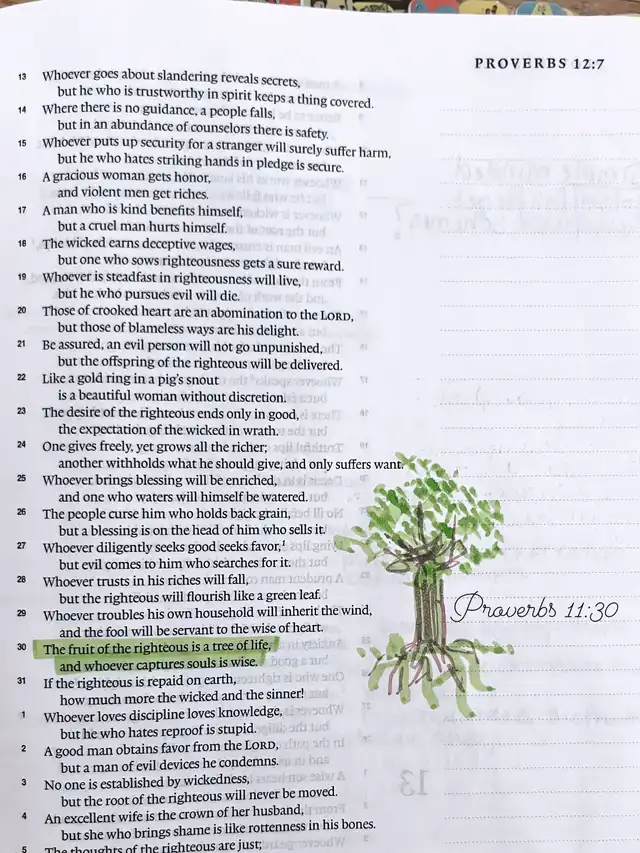 PROVERBS 12:7
13 Whoever goes about slandering reveals secrets,
but he who is trustworthy in spirit keeps a thing covered.
14 Where there is no guidance, a people falls,
but in an abundance of counselors there is safety.
15 Whoever puts up security for a stranger will surely suffer harm,
but he who hates striking hands in pledge is secure.
16 A gracious woman gets honor,
and violent men get riches.
17 A man who is kind benefits himself,
but a cruel man hurts himself.
18 The wicked earns deceptive wages,
but one who sows righteousness gets a sure reward.
19 Whoever is steadfast in righteousness will live,
but he who pursues evil will die.
20 Those of crooked heart are an abomination to the LORD,
but those of blameless ways are his delight.
21 Be assured, an evil person will not go unpunished,
but the offspring of the righteous will be delivered.
22 Like a gold ring in a pig's snout
is a beautiful woman without discretion.
23 The desire of the righteous ends only in good,
the expectation of the wicked in wrath.
24 One gives freely, yet grows all the richer;
another withholds what he should give, and only suffers want.
25 Whoever brings blessing will be enriched,
and one who waters will himself be watered.
26 The people curse him who holds back grain,
but a blessing is on the head of him who sells it.
27 Whoever diligently seeks good seeks favor,¹
but evil comes to him who searches for it.
28 Whoever trusts in his riches will fall,
but the righteous will flourish like a green leaf.
29 Whoever troubles his own household will inherit the wind,
and the fool will be servant to the wise of heart.
Proverbs 11:30
30 The fruit of the righteous is a tree of life,
and whoever captures souls is wise.
31 If the righteous is repaid on earth,
how much more the wicked and the sinner!
1 Whoever loves discipline loves knowledge,
but he who hates reproof is stupid.
2 A good man obtains favor from the LORD,
but a man of evil devices he condemns.
3 No one is established by wickedness,
but the root of the righteous will never be moved.
4 An excellent wife is the crown of her husband,
but she who brings shame is like rottenness in his bones.
5 The thoughts of the righteous are just;